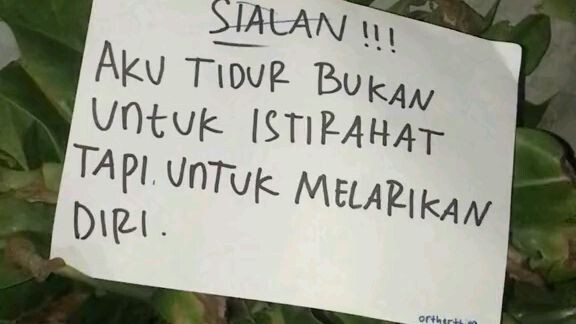 SIALAN !!!
AKU TIDUR BUKAN
UNTUK ISTIRAHAT
TAPI. UNTUK MELARIKAN
DIRI.